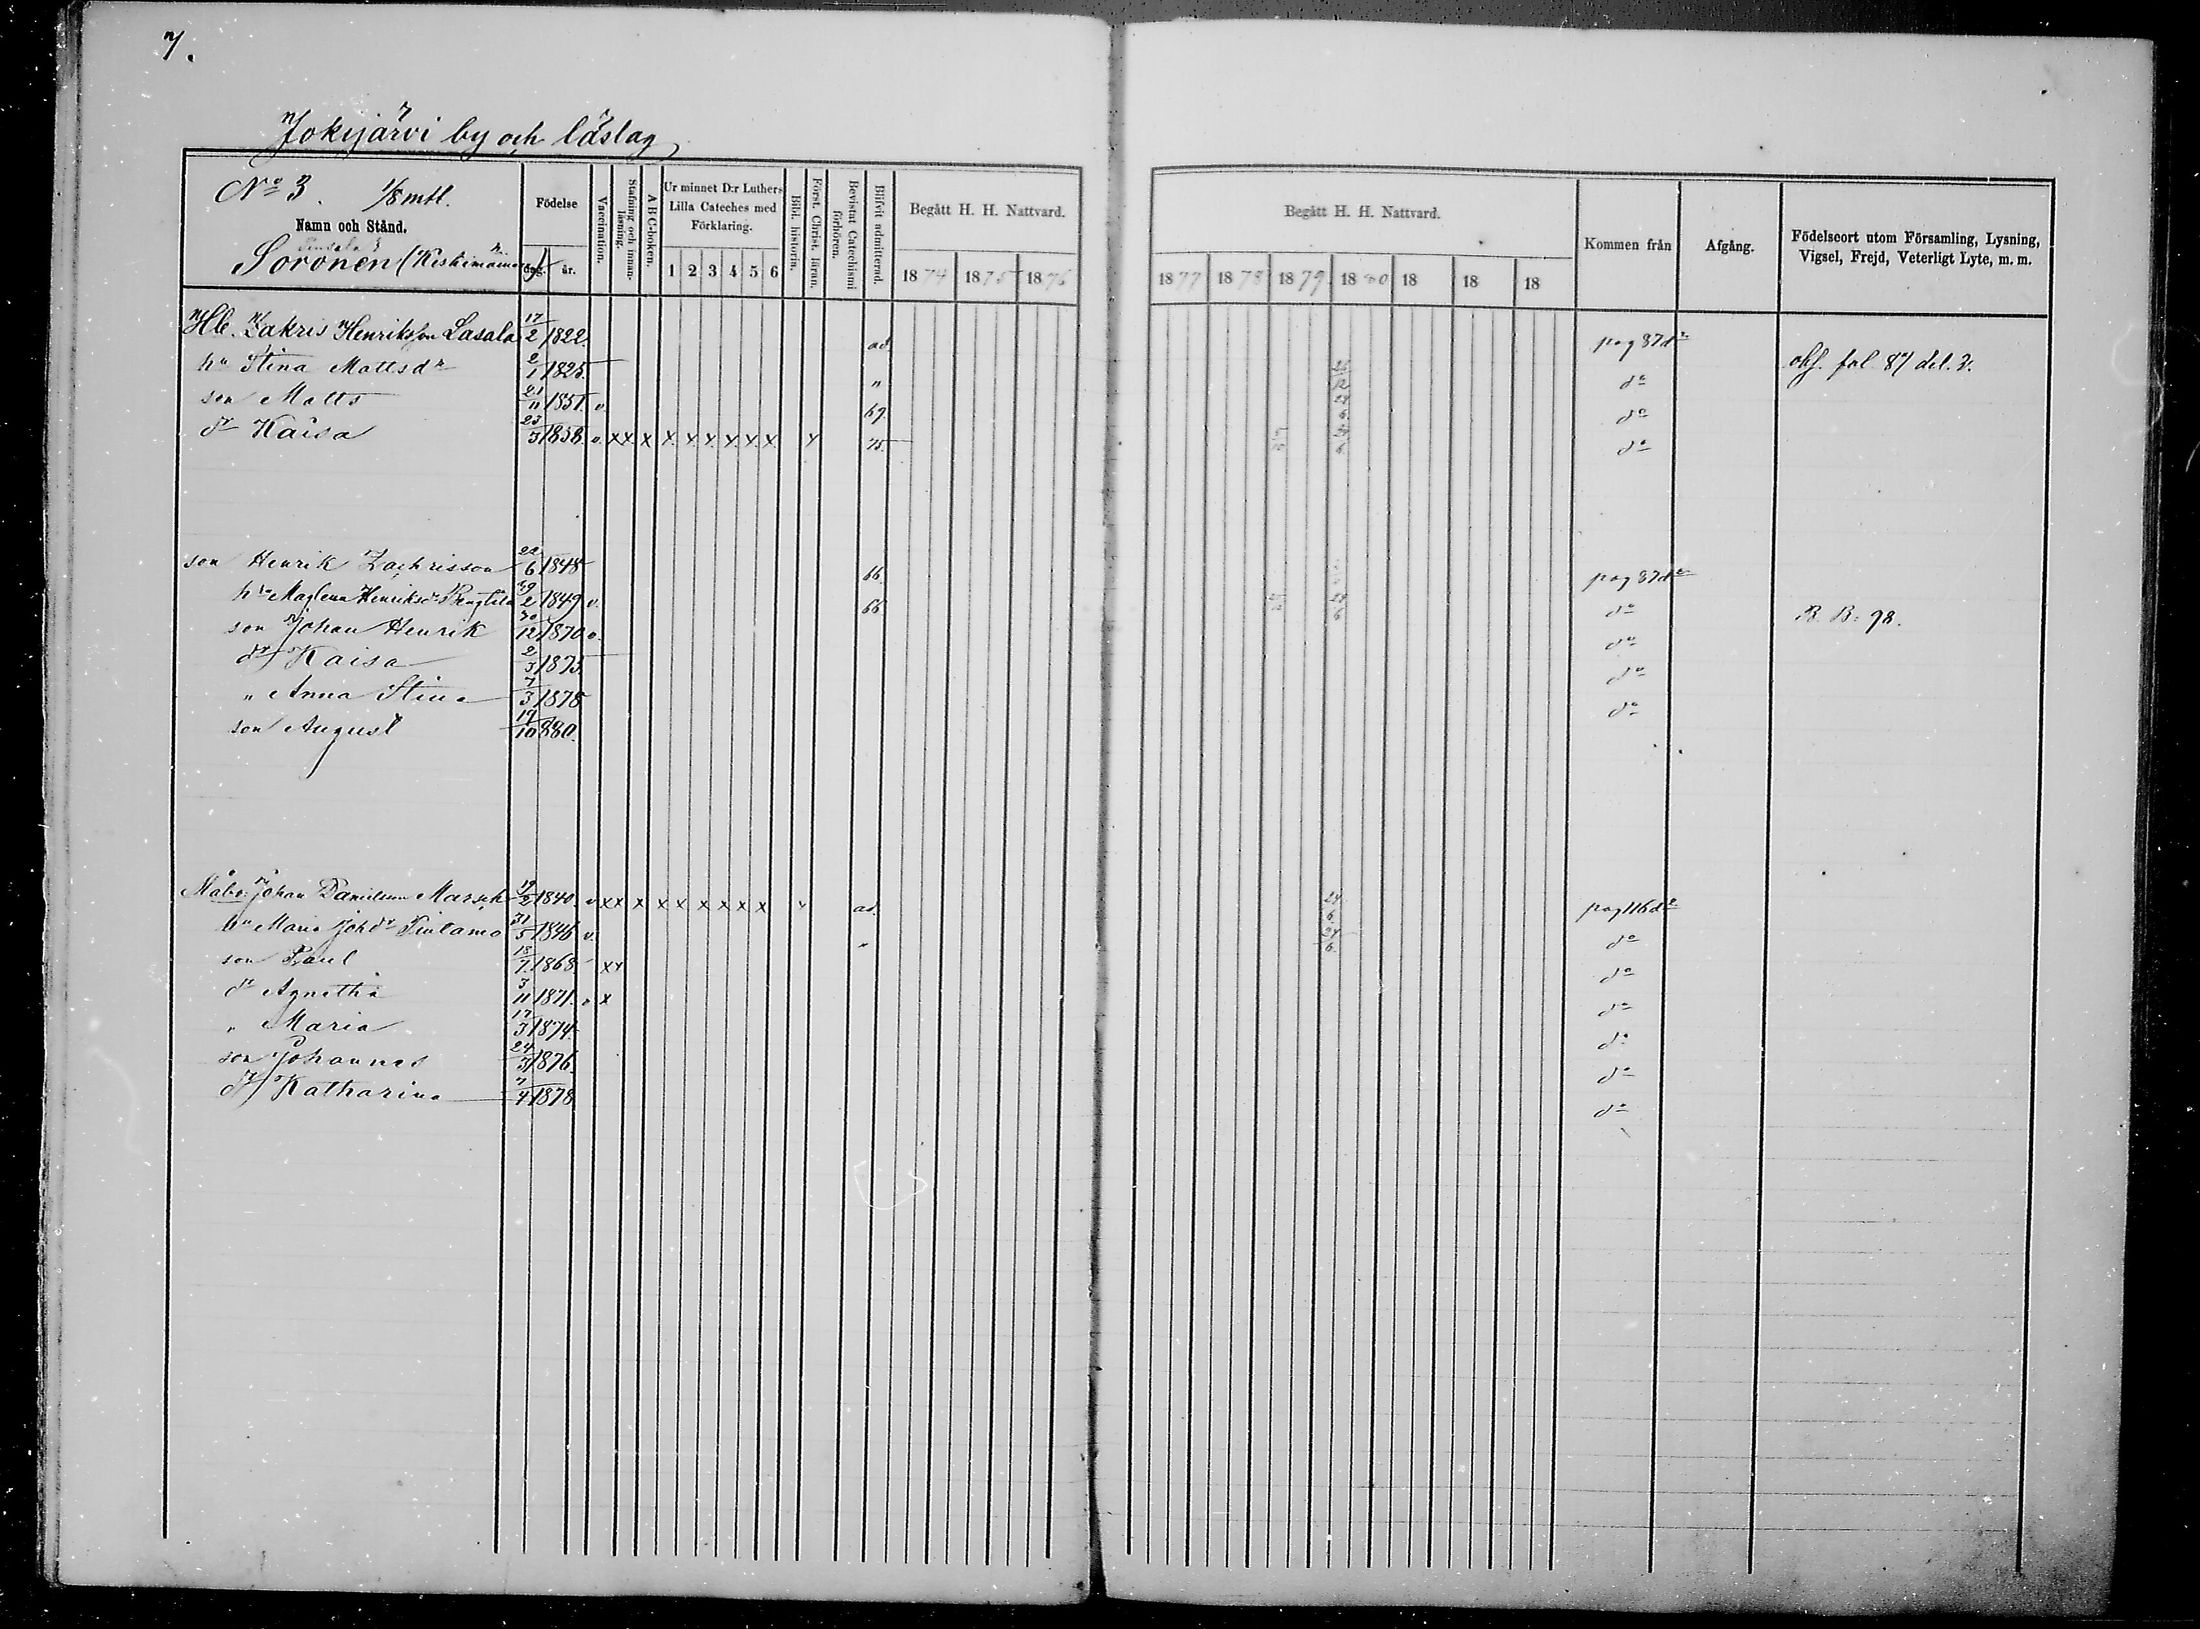 7.
Jokijärvi by och läslag
No 3. 1/8 mtl.
Namn och Stånd.
Soronen (Keskimäinen)
Födelse
dag. år.
Vaccination.
Stafning och innanläsning.
A B C-boken.
Ur minnet D:r Luthers Lilla Cateches med Förklaring.
1 2 3 4 5 6
Bibl. historin.
Först. Christ. läran.
Bevistat Catechismi förhören.
Blifvit admitterad.
Begått H. H. Nattvard.
1874 1875 1876
Begått H. H. Nattvard.
1877 1878 1879 1880 18 18 18
Kommen från
Afgång.
Födelseort utom Församling, Lysning, Vigsel, Frejd, Veterligt Lyte, m. m.
Hb. Zakris Henriksson Lasala 17/2 1822. ad. pag 87 do
hu Stina Mattsdr 2/1 1825. " 12 do obf. fol. 87 del. 2.
son Matts 21/11 1851. v. 69. 24/6 do
dr Kaisa 23/3 1858. v. x x x x x x x x x x 75. 24/6 do
son Henrik Zachrisson 22/6 1848 66. pag 87 do
hu Maglena Henriksdr 29/2 1849 v. 66 24/6 do B. B: 98.
son Johan Henrik 30/12 1870 v. do
dr Kaisa 2/3 1873. do
" Anna Stina 7/3 1878 do
son August 17/10 880.
Johan Danielsson 19/2 1840. v x x x x x x x x x x ad. 24/6 pag 116 do
hu Maria Johdr Pintamo 31/5 1846 v. " 24/6 do
son Paul 13/7 1868 x x do
dr Agnetha 3/11 1871. v x do
" Maria 17/3 1874 do
son Johannes 24/3 1876. do
dr Katharina 7/4 1878 do